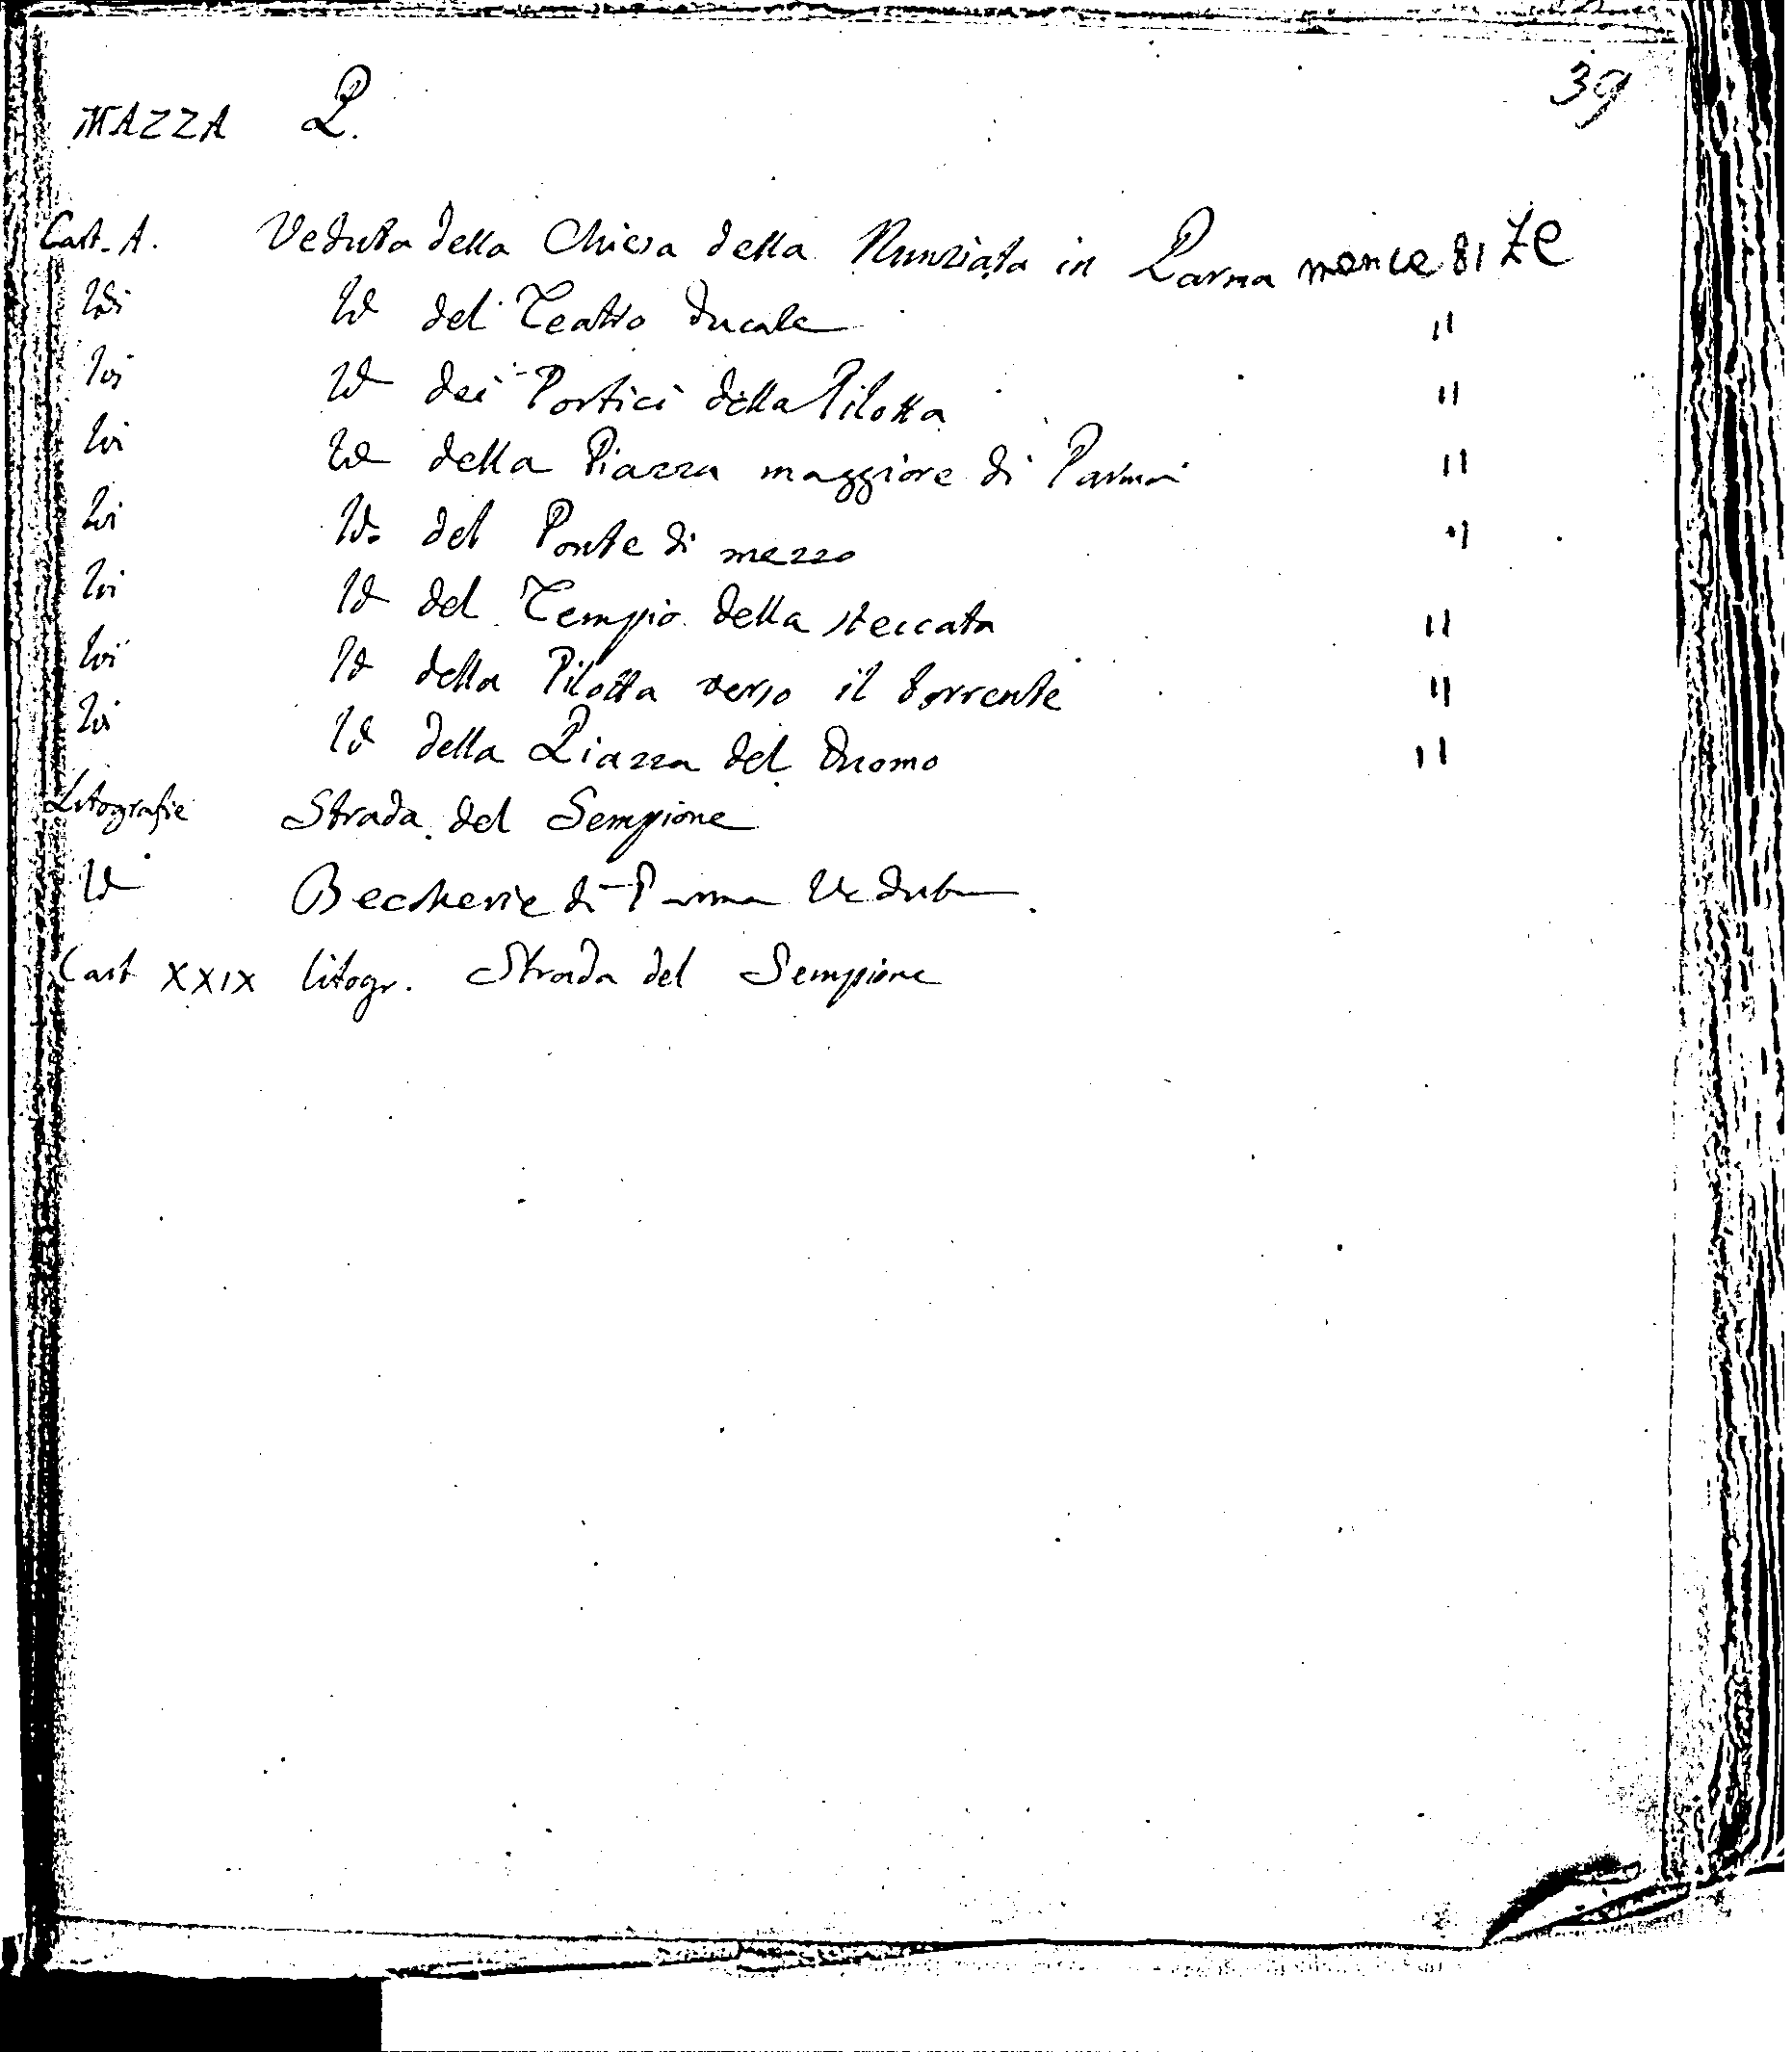 39
MAZZA P.
Cart. A. Veduta della Chiesa della Nunziata in Parma manca 81 ZC
Ivi Id del Teatro Ducale "
Ivi Id dei Portici della Pilotta "
Ivi Id della Piazza maggiore di Parma "
Ivi Id. del Ponte di mezzo "
Ivi Id del Tempio della steccata "
Ivi Id della Pilotta verso il torrente "
Ivi Id della Piazza del Duomo "
Litografie Strada del Sempione
Id Beccherie di Parma Veduta
Cart XXIX litogr. Strada del Sempione